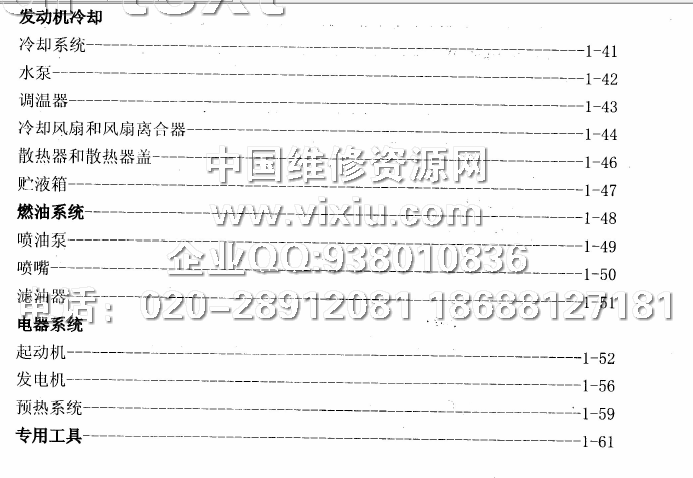 发动机冷却
冷却系统 1-41
水泵 1-42
调温器 1-43
冷却风扇和风扇离合器 1-44
散热器和散热器盖 1-46
中国维修资源网
贮液箱 1-47
燃油系统 1-48
www.vixiu.com
喷油泵 1-49
企业QQ:938010836
喷嘴 1-50
滤油器 1-51
电话：020-28912081 18688127181
电器系统
起动机 1-52
发电机 1-56
预热系统 1-59
专用工具 1-61